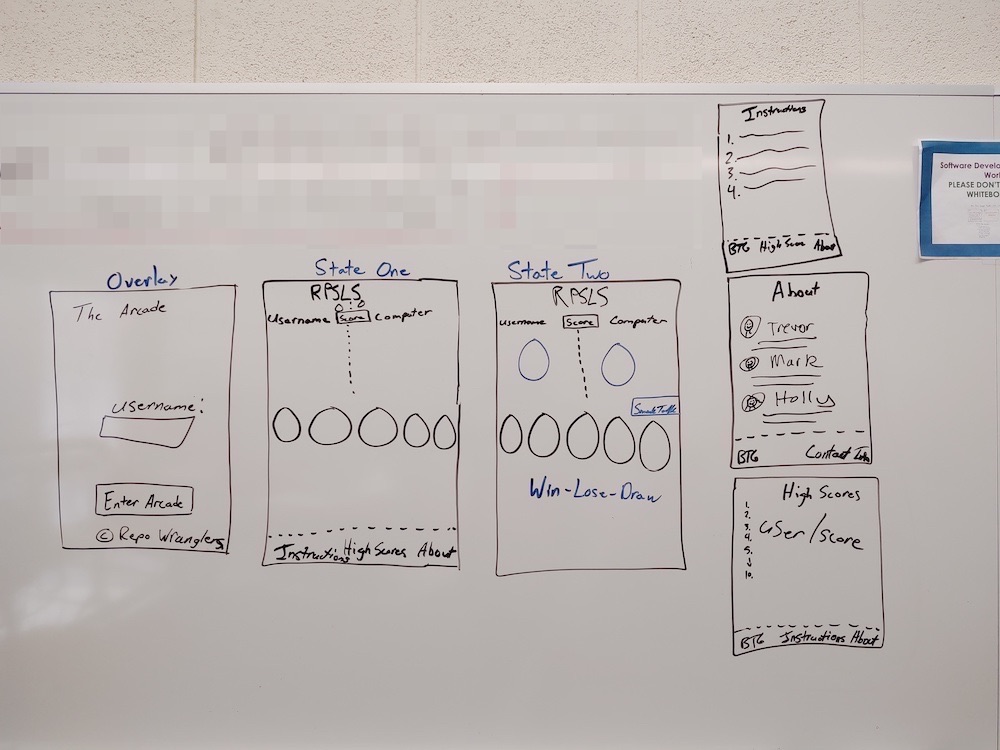 Overlay
The Arcade
Username:
Enter Arcade
© Repo Wranglers
State One
RPSLS
0 : 0
Username Score Computer
Instructions High Scores About
State Two
RPSLS
Username Score Computer
Smack Talk
Win-Lose-Draw
Instructions
1.
2.
3.
4.
BTG High Score About
About
Trevor
Mark
Holly
BTG Contact Info
High Scores
1.
2.
3.
4.
5.
10.
User/Score
BTG Instructions About
Software Develo
Wor
PLEASE DON'T
WHITEBO